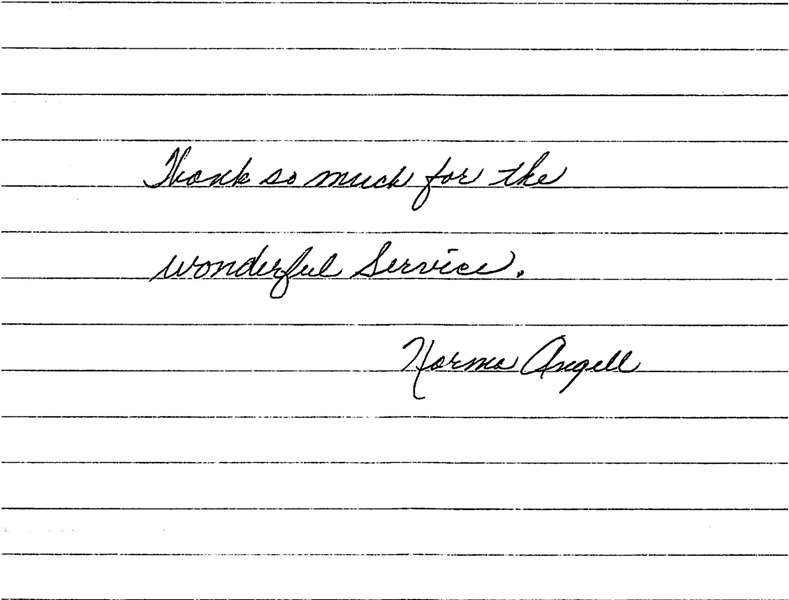 Thank so much for the
wonderful Service.
Norma Angell